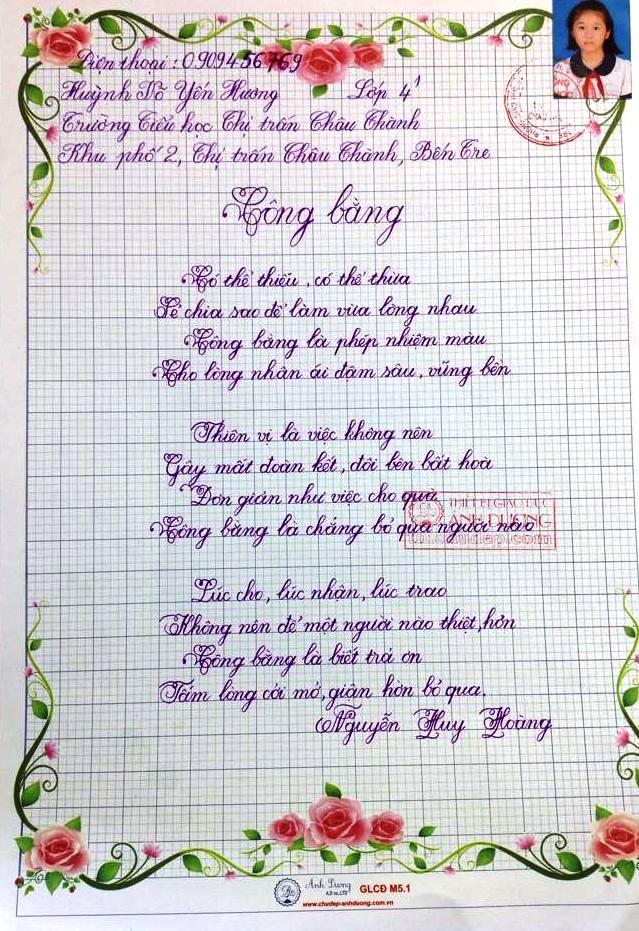 Điện thoại : 0909456769
Huỳnh Võ Yến Hương Lớp 4¹
Trường Tiểu học Thị trấn Châu Thành
Khu phố 2, Thị trấn Châu Thành, Bến Tre
Công bằng
Có thể thiếu, có thể thừa
Sẻ chia sao để làm vừa lòng nhau
Công bằng là phép nhiệm màu
Cho lòng nhân ái đậm sâu, vững bền
Thiên vị là việc không nên
Gây mất đoàn kết, đôi bên bất hoà
Đơn giản như việc cho quà
Công bằng là chẳng bỏ qua người nào
THIẾT BỊ GIÁO DỤC
ANH DƯƠNG
Lúc cho, lúc nhận, lúc trao
Không nên để một người nào thiệt, hơn
Công bằng là biết trả ơn
Tấm lòng cởi mở, giận hờn bỏ qua.
Nguyễn Huy Hoàng
Ánh Dương
A.D co.,LTD
GLCĐ M5.1
www.chudep-anhduong.com.vn